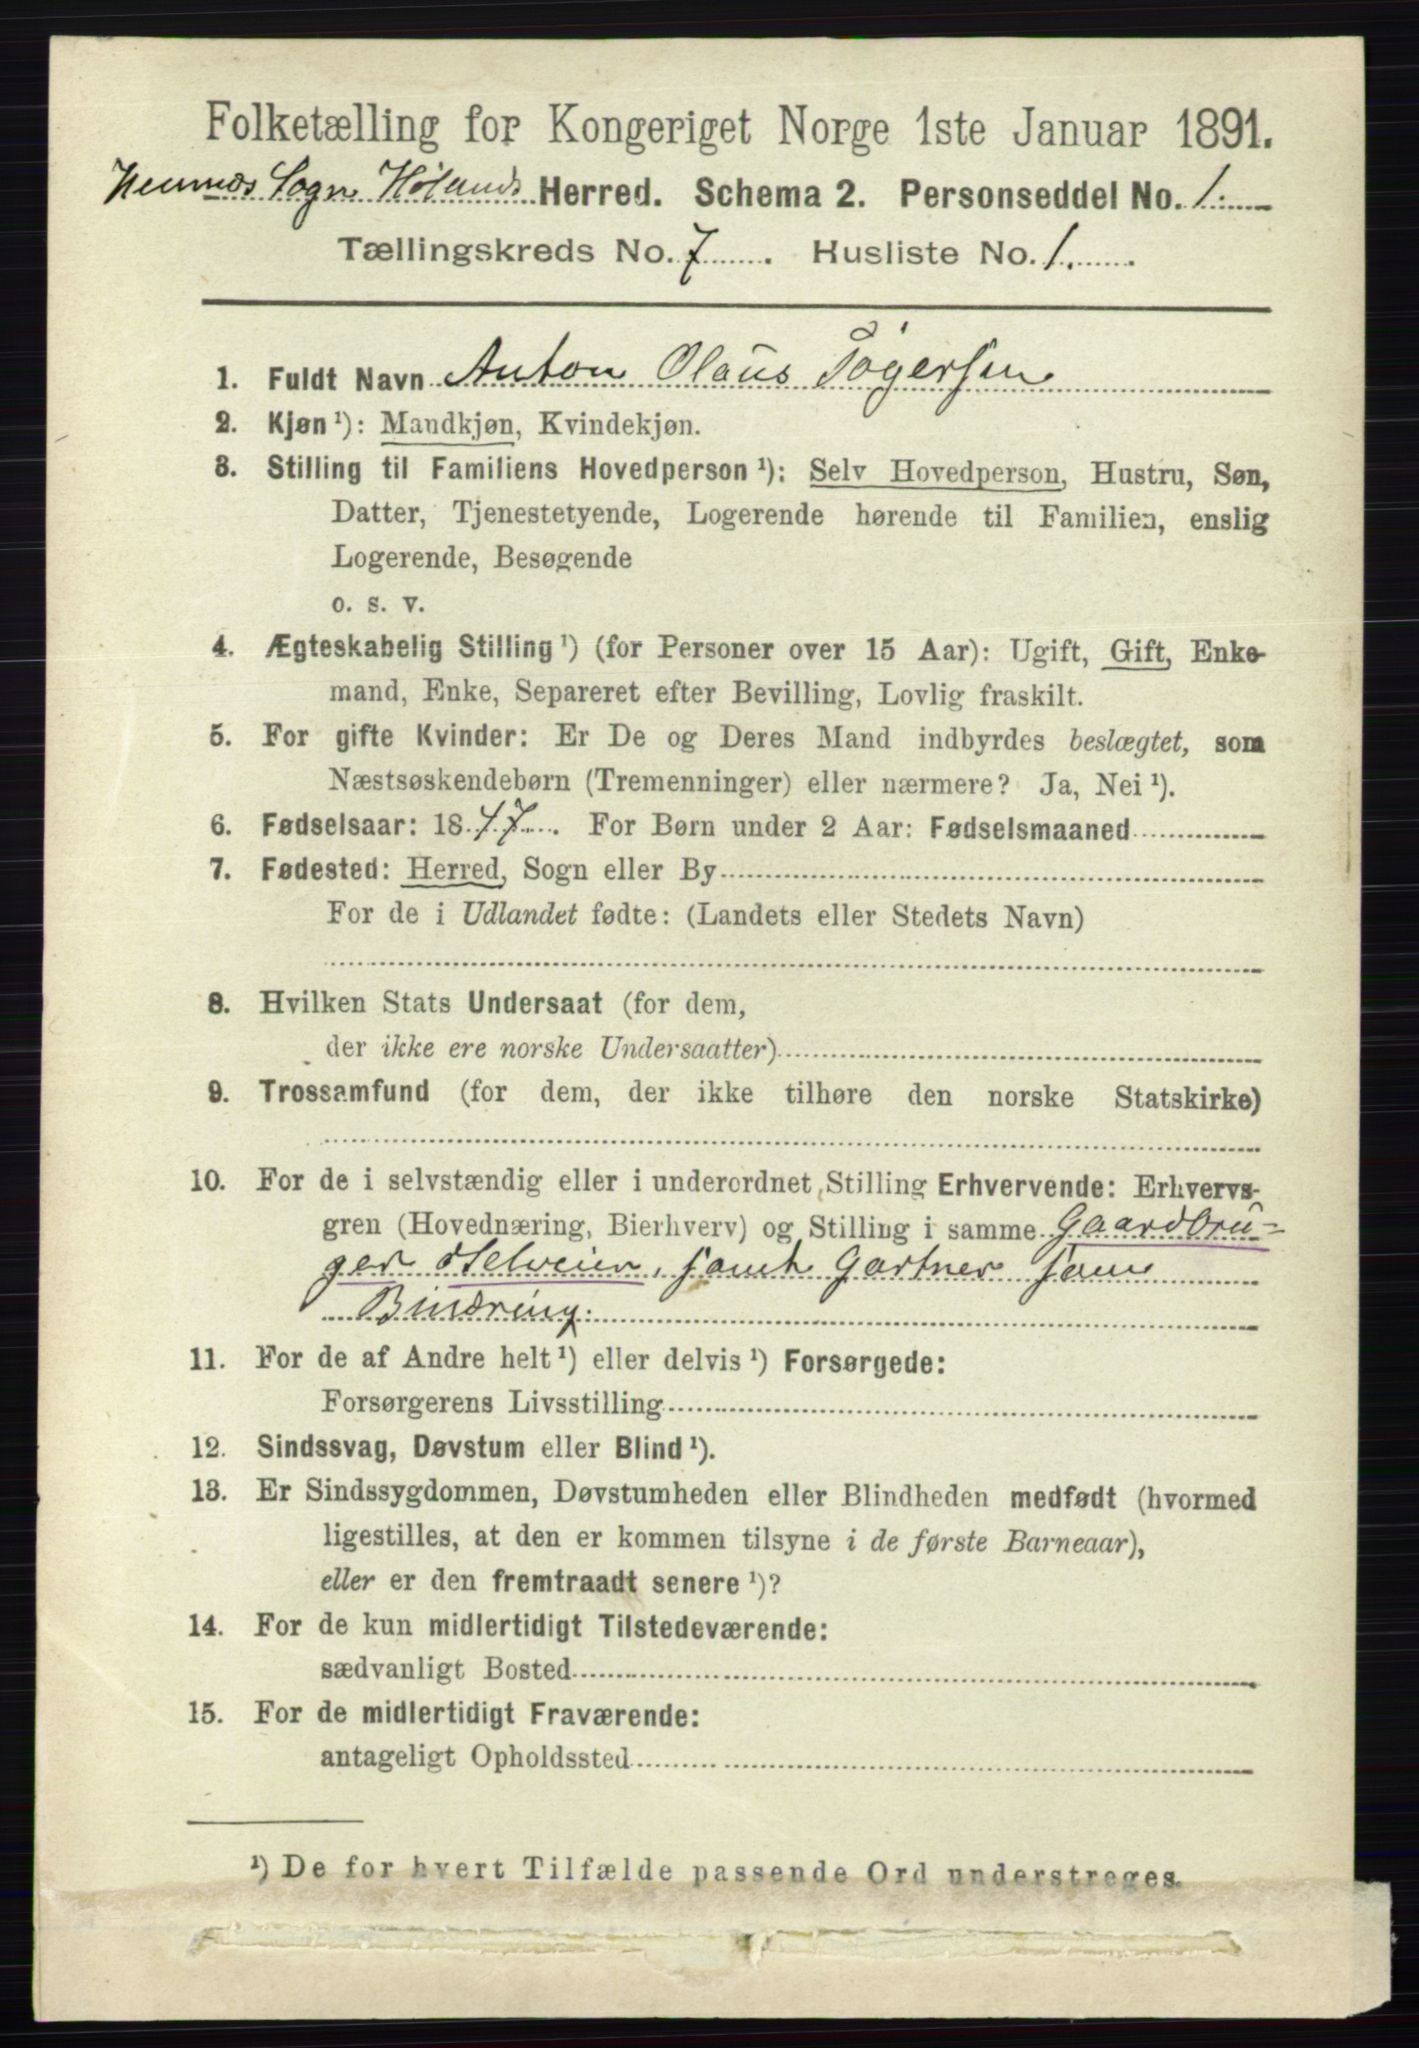 Folketælling for Kongeriget Norge 1ste Januar 1891.
Hemnæs Sogn Hølands Herred. Schema 2. Personseddel No. 1.
Tællingskreds No. 7. Husliste No. 1.
1. Fuldt Navn Anton Olaus Tøgersen
2. Kjøn ¹): Mandkjøn, Kvindekjøn.
3. Stilling til Familiens Hovedperson ¹): Selv Hovedperson, Hustru, Søn,
Datter, Tjenestetyende, Logerende hørende til Familien, enslig
Logerende, Besøgende
o. s. v.
4. Ægteskabelig Stilling ¹) (for Personer over 15 Aar): Ugift, Gift, Enke-
mand, Enke, Separeret efter Bevilling, Lovlig fraskilt.
5. For gifte Kvinder: Er De og Deres Mand indbyrdes beslægtet, som
Næstsøskendebørn (Tremenninger) eller nærmere? Ja, Nei ¹).
6. Fødselsaar: 1847. For Børn under 2 Aar: Fødselsmaaned
7. Fødested: Herred, Sogn eller By
For de i Udlandet fødte: (Landets eller Stedets Navn)
8. Hvilken Stats Undersaat (for dem,
der ikke ere norske Undersaatter)
9. Trossamfund (for dem, der ikke tilhøre den norske Statskirke)
10. For de i selvstændig eller i underordnet Stilling Erhvervende: Erhvervs-
gren (Hovednæring, Bierhverv) og Stilling i samme Gaardbru-
ger Selveier, samt Gartner som
Binæring.
11. For de af Andre helt ¹) eller delvis ¹) Forsørgede:
Forsørgerens Livsstilling
12. Sindssvag, Døvstum eller Blind ¹).
13. Er Sindssygdommen, Døvstumheden eller Blindheden medfødt (hvormed
ligestilles, at den er kommen tilsyne i de første Barneaar),
eller er den fremtraadt senere ¹)?
14. For de kun midlertidigt Tilstedeværende:
sædvanligt Bosted
15. For de midlertidigt Fraværende:
antageligt Opholdssted
¹) De for hvert Tilfælde passende Ord understreges.